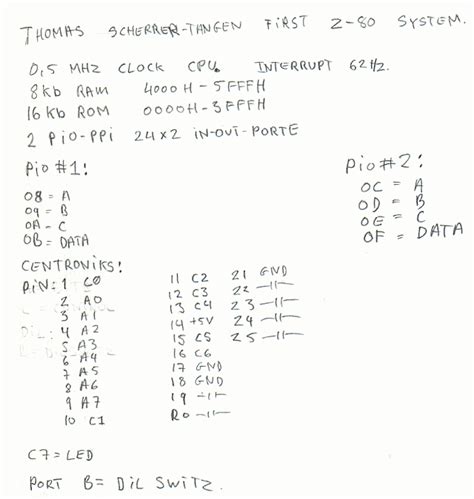 THOMAS SCHERRER-TANGEN FIRST Z-80 SYSTEM.
0,5 MHZ CLOCK CPU. INTERRUPT 62Hz.
8kb RAM 4000H-5FFFH
16kb ROM 0000H-3FFFH
2 PiO-PPi 24x2 IN-OUT-PORTE
PiO #1:
08 = A
09 = B
0A - C
0B = DATA
PiO #2:
0C = A
0D = B
0E = C
0F = DATA
CENTRONiKS:
PiN: 1 C0
2 A0
3 A1
4 A2
5 A3
6 A4
7 A5
8 A6
9 A7
10 C1
11 C2
12 C3
13 C4
14 +5V
15 C5
16 C6
17 GND
18 GND
19 -11-
20 -11-
21 GND
22 -11-
23 -11-
24 -11-
25 -11-
C7 = LED
PORT B = DiL SWiTZ.